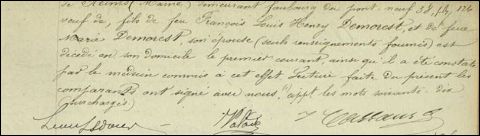 de Reims (Marne) demeurant faubourg du pont neuf 38.
veuf de, fils de feu François Louis Henry Demorest, et de feue
Marie Demorest, son épouse (seuls renseignements fournis) est
décédé en son domicile le premier courant, ainsi qu'il a été constaté
par le médecin commis à cet effet Lecture faite du présent les
comparants ont signé avec nous, app.t les mots suivants: dix
surchargés)